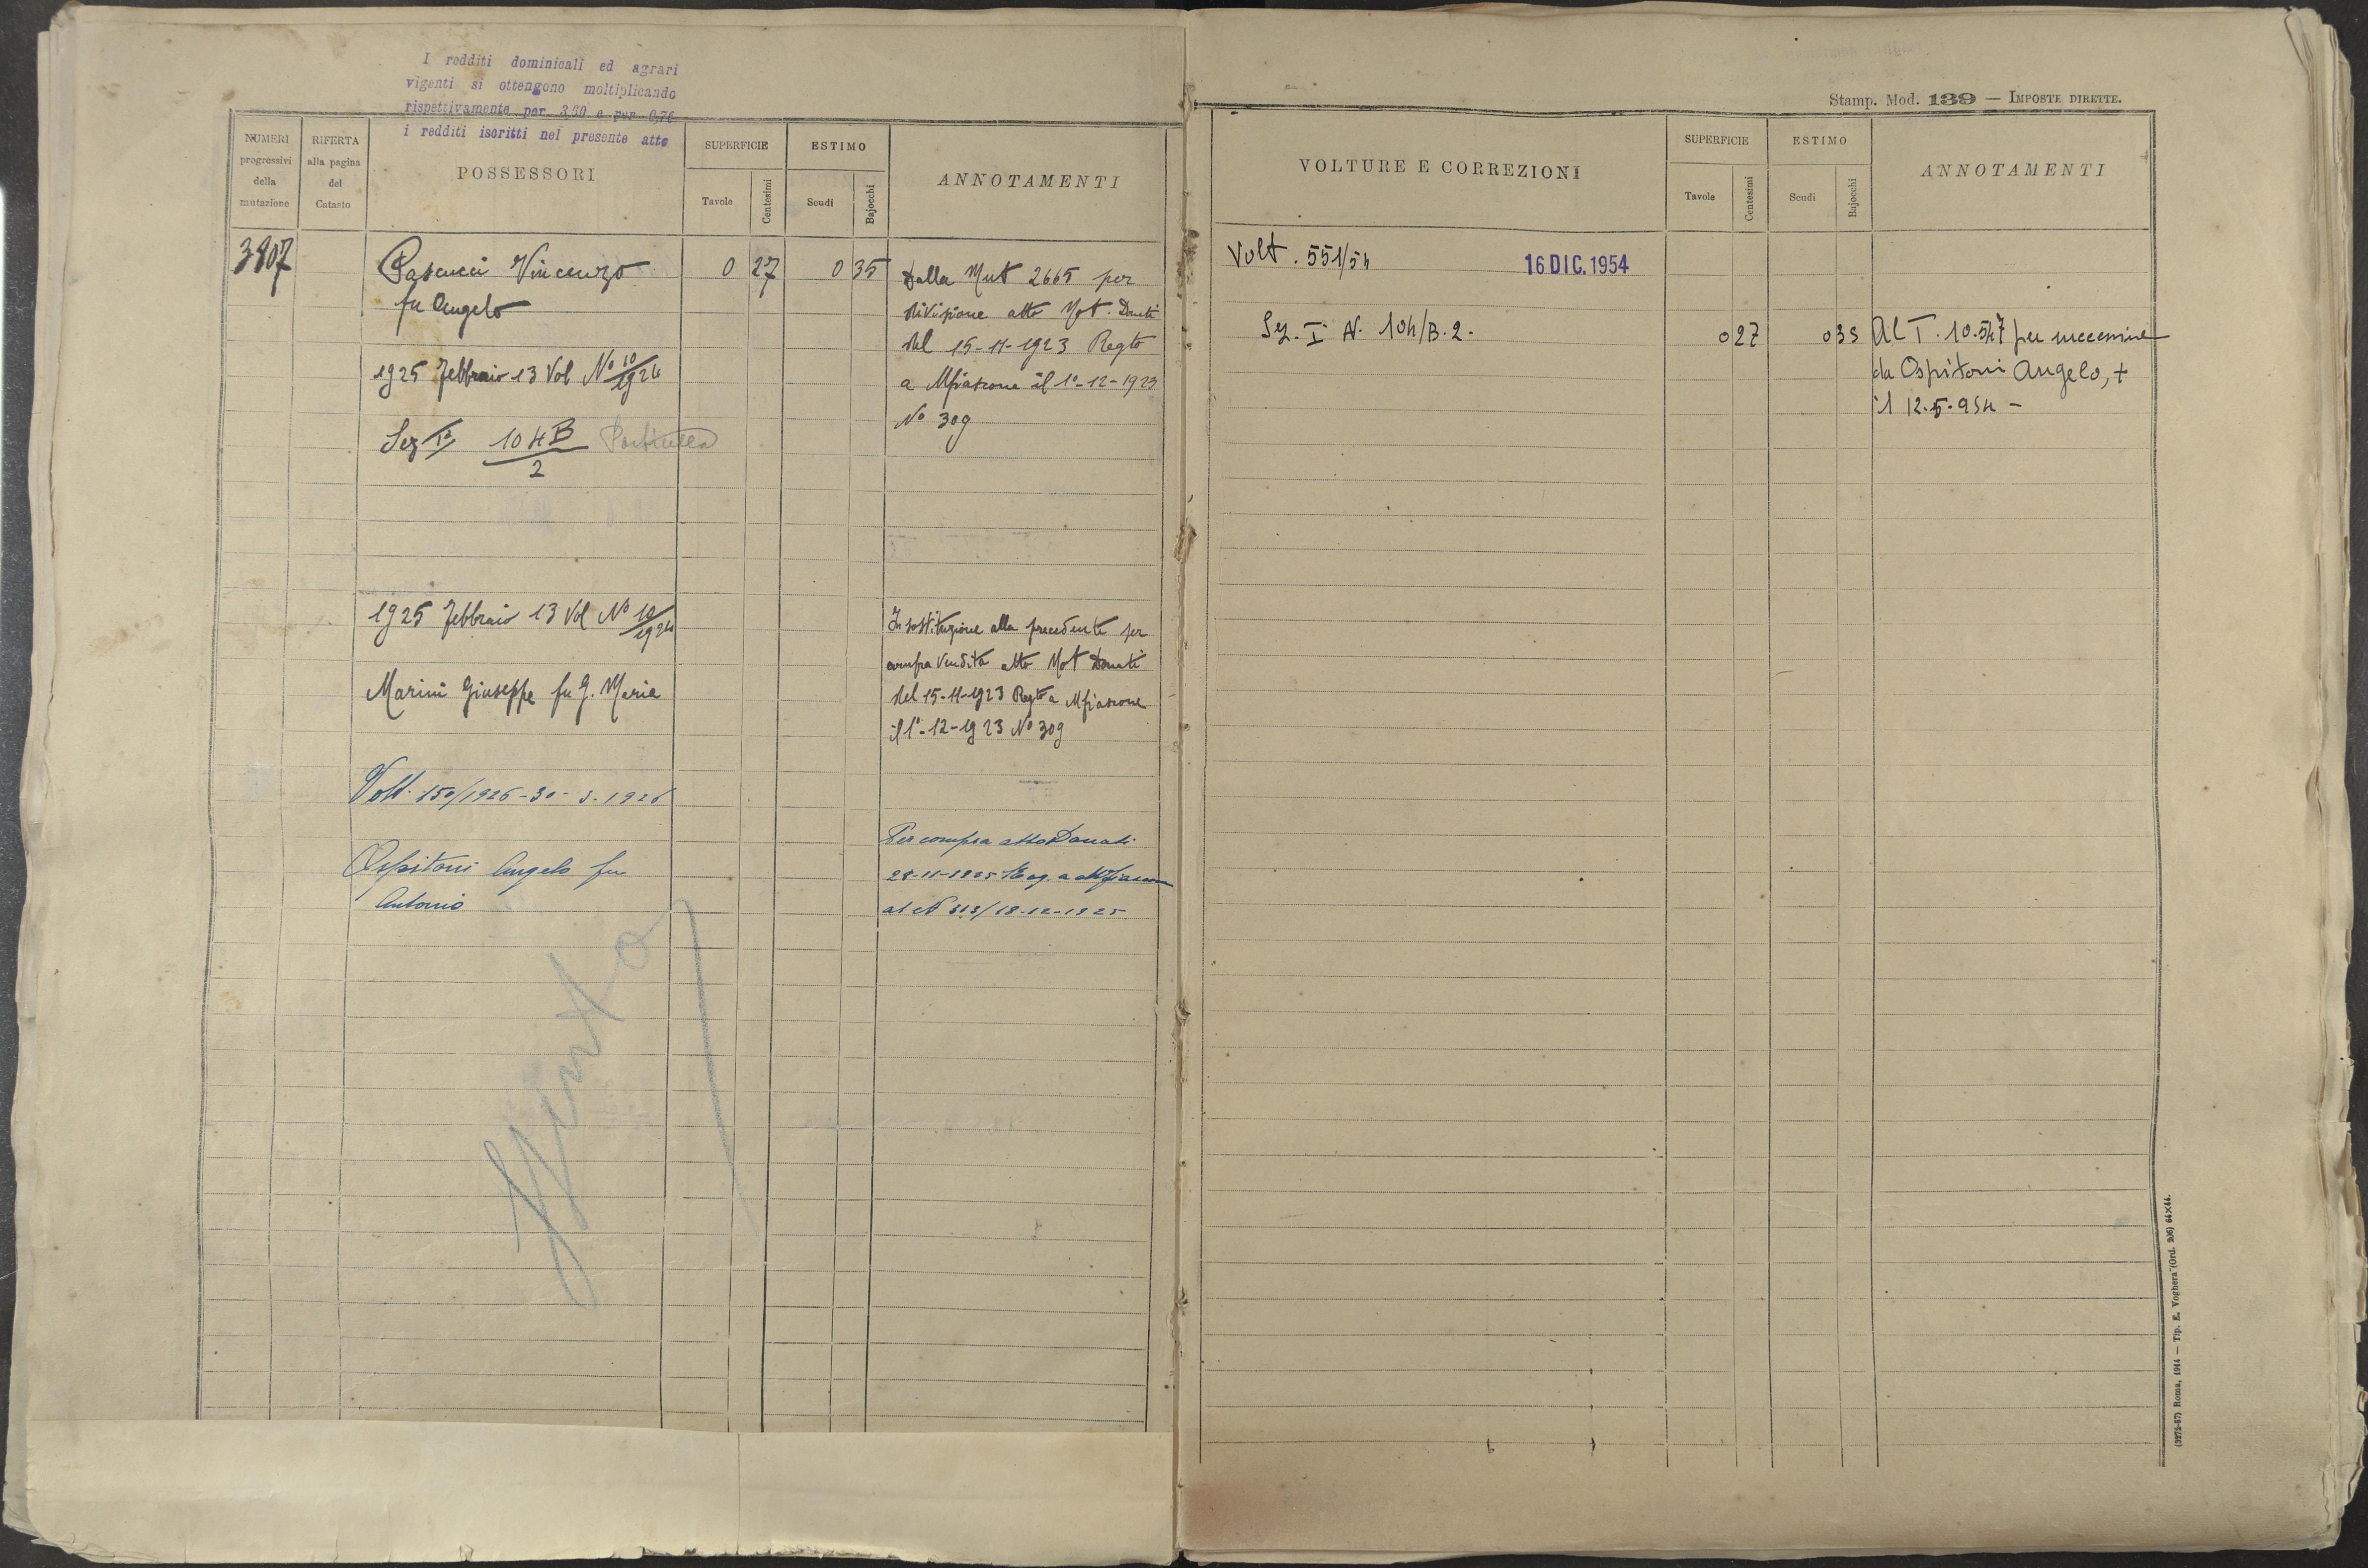 I redditi dominicali ed agrari
vigenti si ottengono moltiplicando
rispettivamente per 3,60 e per 0,76
i redditi iscritti nel presente atto
NUMERI
progressivi
della
mutazione
RIFERTA
alla pagina
del
Catasto
POSSESSORI
SUPERFICIE
Tavole
Centesimi
ESTIMO
Scudi
Bajocchi
ANNOTAMENTI
3807
Pascucci Vincenzo
fu Angelo
0 27
0 35
Dalla Mut 2665 per
divisione atto Not. Donati
del 15-11-1923 Regto
a Mfiascone il 1º-12-1923
Nº 309
1925 Febbraio 13 Vol Nº 10/1924
Sez Iª 104 B/2 Particella
1925 Febbraio 13 Vol Nº 10/1924
Marini Giuseppe fu G. Maria
In sostituzione alla precedente per
compra vendita atto Not Donati
del 15-11-1923 Regto a Mfiascone
il 1º-12-1923 Nº 309
Volt. 150/1926-30-3-1926
Ospitoni Angelo fu
Antonio
Per compra atto Donati
28-11-1925 Reg. a Mfiascon
al N 313/18-12-1925
Stamp. Mod. 139 — IMPOSTE DIRETTE.
VOLTURE E CORREZIONI
SUPERFICIE
Tavole
Centesimi
ESTIMO
Scudi
Bajocchi
ANNOTAMENTI
Volt. 551/54
16 DIC. 1954
Sez. I N. 104/B.2.
0 27
0 35
Al T. 10.547 per successione
da Ospitoni Angelo, +
il 12.5.954 -
(3272-57) Roma, 1914 — Tip. E. Voghera (Ord. 206) 64×44.